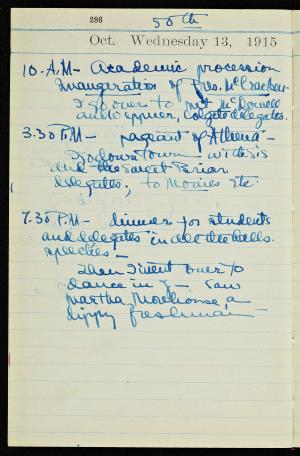 286
50th
Oct. Wednesday 13, 1915
10. A.M- Academic procession
Inauguration of Pres. McCracken-
I go over to meet McDowell
and Weppner, Colgate delegates.
3.30 P.M- pageant of Athena-
Go down Town with Sis
and the Sweet Briar
delegates; to Movies etc.
7.30 P.M- dinner for students
and delegates in all the halls.
speeches-
Then I went over to
dance in J- Saw
Martha Morehouse, a
dippy freshman